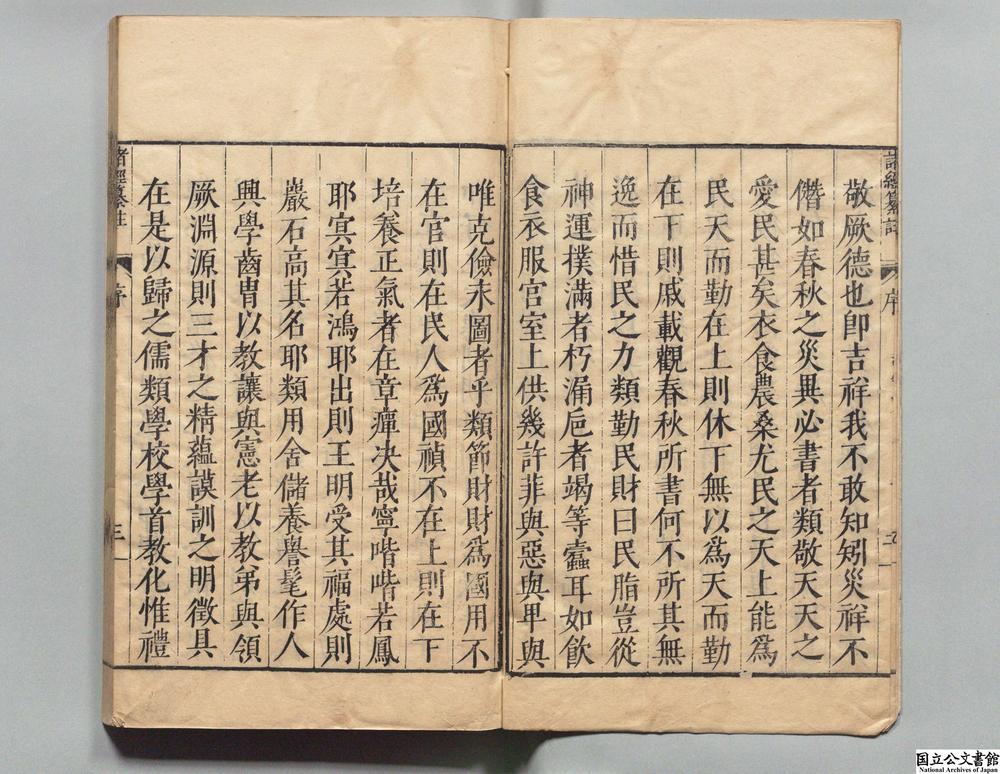 敬厥德也卽吉祥我不敢知矧災祥不
僭如春秋之災異必書者類敬天天之
愛民甚矣衣食農桑尤民之天上能爲
民天而勤在上則休下無以爲天而勤
在下則戚載觀春秋所書何不所其無
逸而惜民之力類勤民財曰民脂豈從
神運撲滿者朽漏巵者竭等蠹耳如飲
食衣服宮室上供幾許菲與惡與卑與
唯克儉未圖者乎類節財財爲國用不
在官則在民人爲國禎不在上則在下
培養正氣者在章癉决哉寧喈喈若鳳
耶冥冥若鴻耶出則王明受其福處則
巖石高其名耶類用舍儲養譽髦作人
興學齒胄以教讓與憲老以教弟與領
厥淵源則三才之精蘊謨訓之明徵具
在是以歸之儒類學校學首教化惟禮
諸經纂註
序
三
国立公文書館
National Archives of Japan